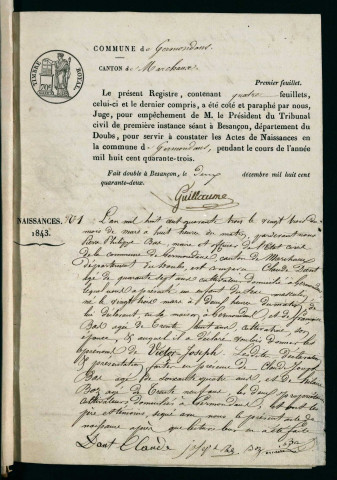 COMMUNE de Germondans
CANTON de Marchaux
Premier feuillet.
TIMBRE ROYAL
Le présent Registre, contenant quatre feuillets,
celui-ci et le dernier compris, a été coté et paraphé par nous,
Juge, pour empêchement de M. le Président du Tribunal
civil de première instance séant à Besançon, département du
Doubs, pour servir à constater les Actes de Naissances en
la commune de Germondans, pendant le cours de l'année
mil huit cent quarante-trois.
Fait double à Besançon, le décembre mil huit cent
quarante-deux.
Guillaume
NAISSANCES.
1843.
N° 1
L'an mil huit cent quarante trois le vingt trois du
mois de mars à huit heures du matin, pardevant nous
Philippe Baz, maire et officier de l'Etat civil
de la commune de Germondans, canton de Marchaux
département du Doubs, est comparu Claude Dant
âgé de quarante sept ans cultivateur domicilié à Germondans
lequel nous a présenté un enfant de sexe masculin
né le vingt trois mars à heures du matin, de
lui déclarant, en sa maison à Germondans et de
Baz âgée de trente ans cultivatrice, son
épouse, & auquel il a déclaré vouloir donner les
prénoms de Victor Joseph. Lesdites déclaration
& présentation faites en présence de Claude Joseph
Baz âgé de soixante quatre ans et de
Baz âgé de trente neuf ans, les deux
cultivateurs domiciliés à Germondans, et ont les
père et témoins, signé avec nous le présent acte de
naissance après que lecture leur en a été faite.
Dant Claude joseph Baz Baz